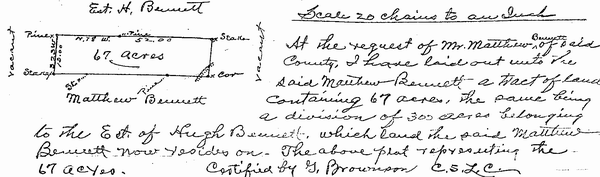 Est. H. Bennett
Scale 20 chains to an Inch
Pine
N.78 W.
Pine
52.00
Stake
vacant
13.00
67 acres
vacant
Stake
Pine
Cor
Matthew Bennett
At the request of Mr. Matthew Bennett of said
County, I have laid out unto the
said Matthew Bennett a tract of land
containing 67 acres, the same being
a division of 300 acres belonging
to the Est. of Hugh Bennett, which land the said Matthew
Bennett now resides on. The above plat representing the
67 acres. Certified by G. Brownson C.S.L.C.